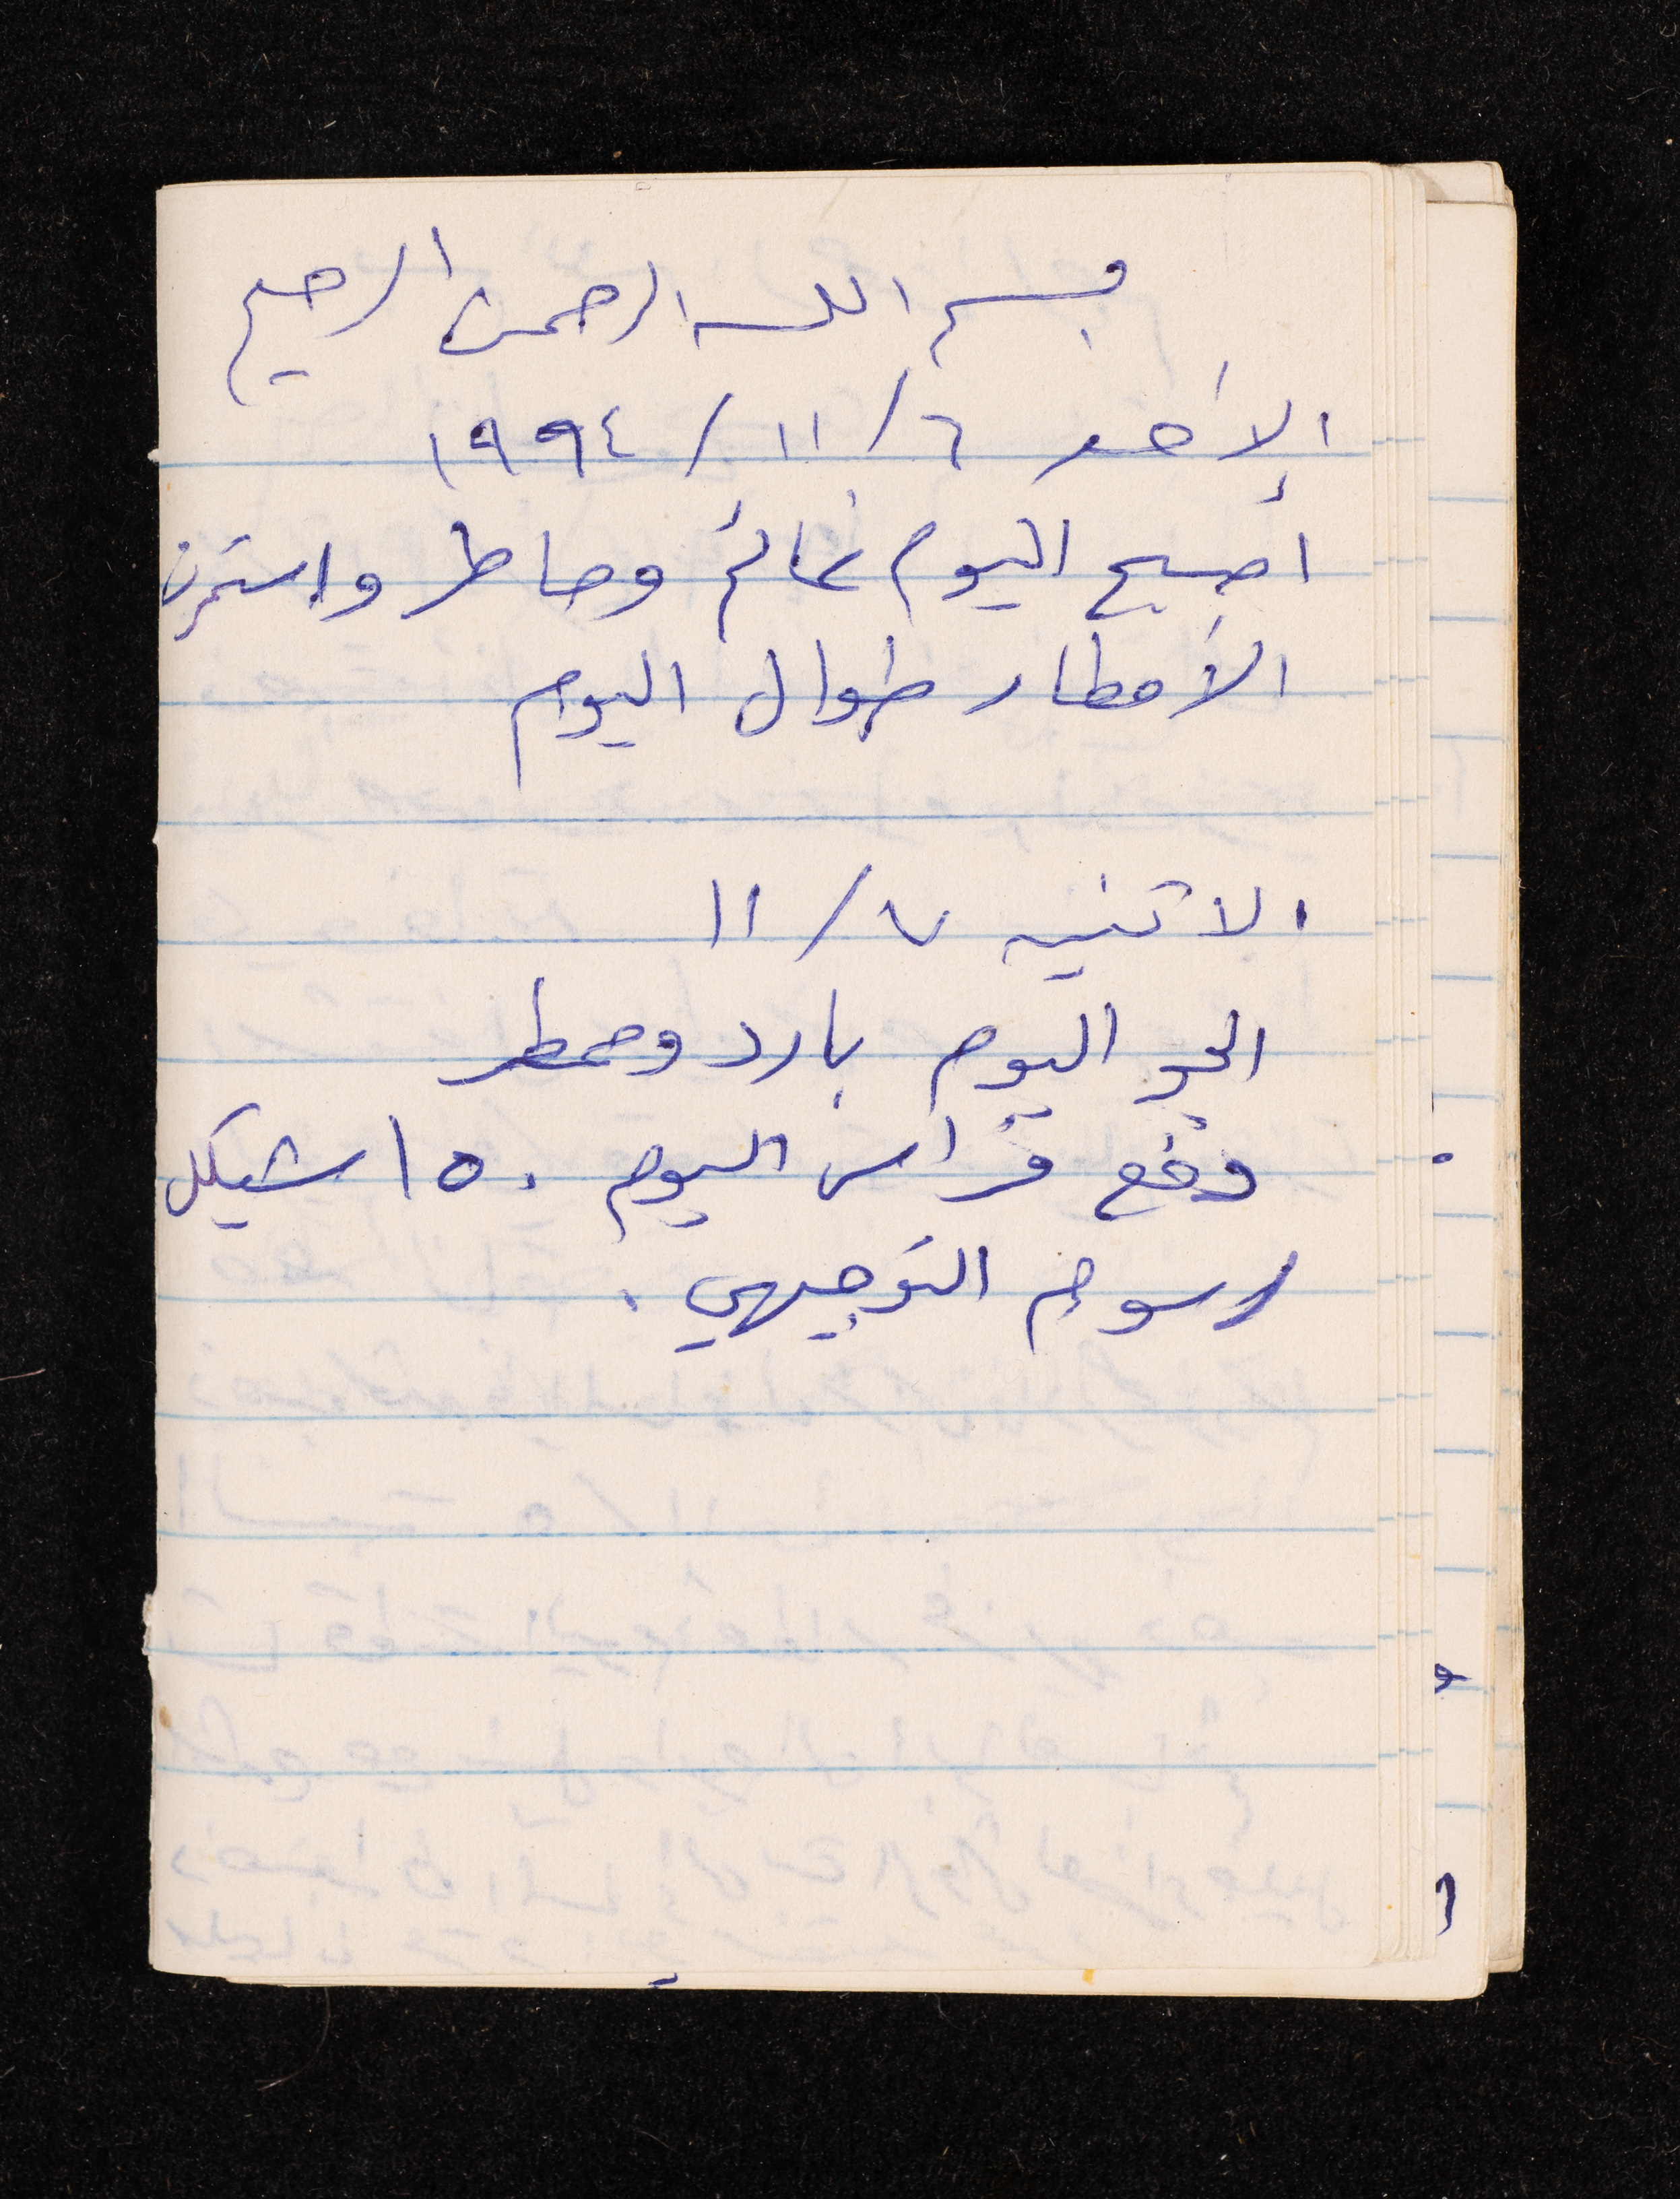 بسم الله الرحمن الرحيم
الأحد ٦/ ١١/ ١٩٩٤
أصبح اليوم غائم وماطر واستمرت
الأمطار طوال اليوم
الاثنين ٧/ ١١
الجو اليوم بارد وممطر
دفع فراس اليوم ١٥٠ شيكل
رسوم التوجيهي.